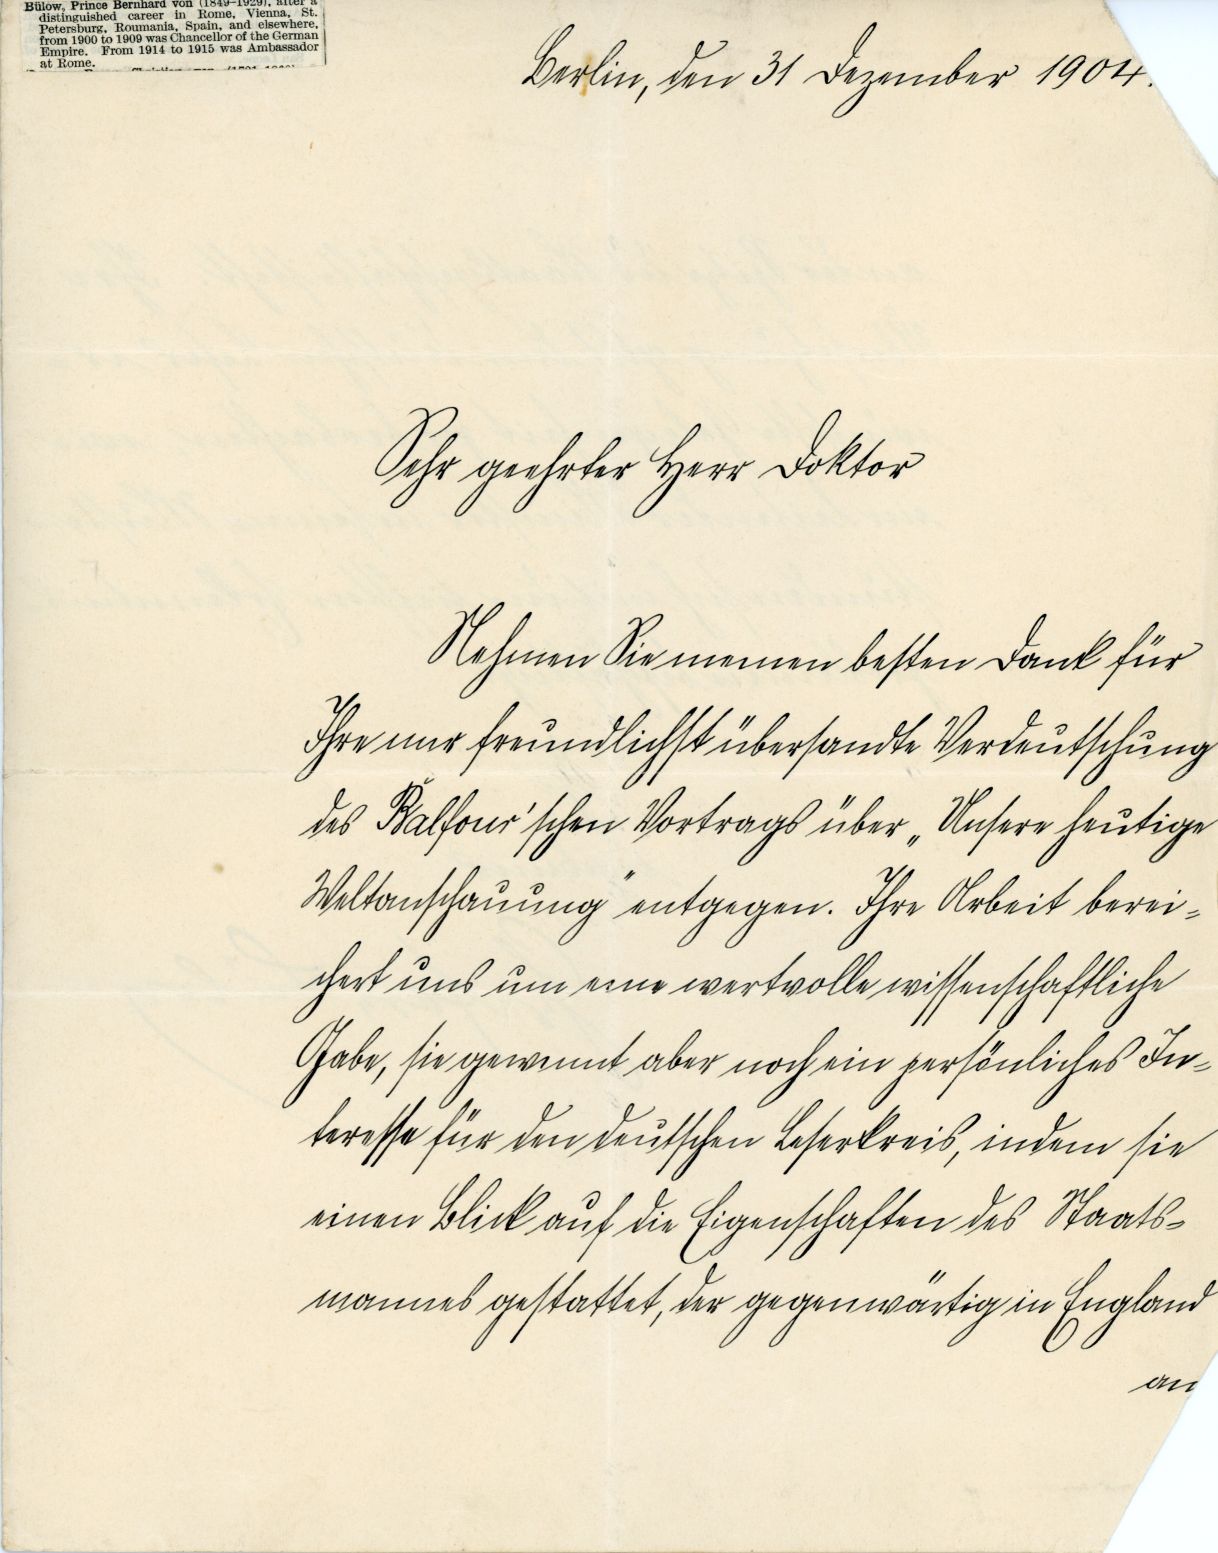 Bülow, Prince Bernhard von (1849-1929), after a
distinguished career in Rome, Vienna, St.
Petersburg, Roumania, Spain, and elsewhere,
from 1900 to 1909 was Chancellor of the German
Empire. From 1914 to 1915 was Ambassador
at Rome.
Berlin, den 31 Dezember 1904.
Sehr geehrter Herr Doktor
Nehmen Sie meinen besten Dank für
Ihre mir freundlichst übersandte Verdeutschung
des Balfour'schen Vortrags über „Unsere heutige
Weltanschauung" entgegen. Ihre Arbeit berei-
chert uns um eine wertvolle wissenschaftliche
Gabe, sie gewinnt aber noch ein persönliches In-
teresse für den deutschen Leserkreis, indem sie
einen Blick auf die Eigenschaften des Staats-
mannes gestattet, der gegenwärtig in England
an